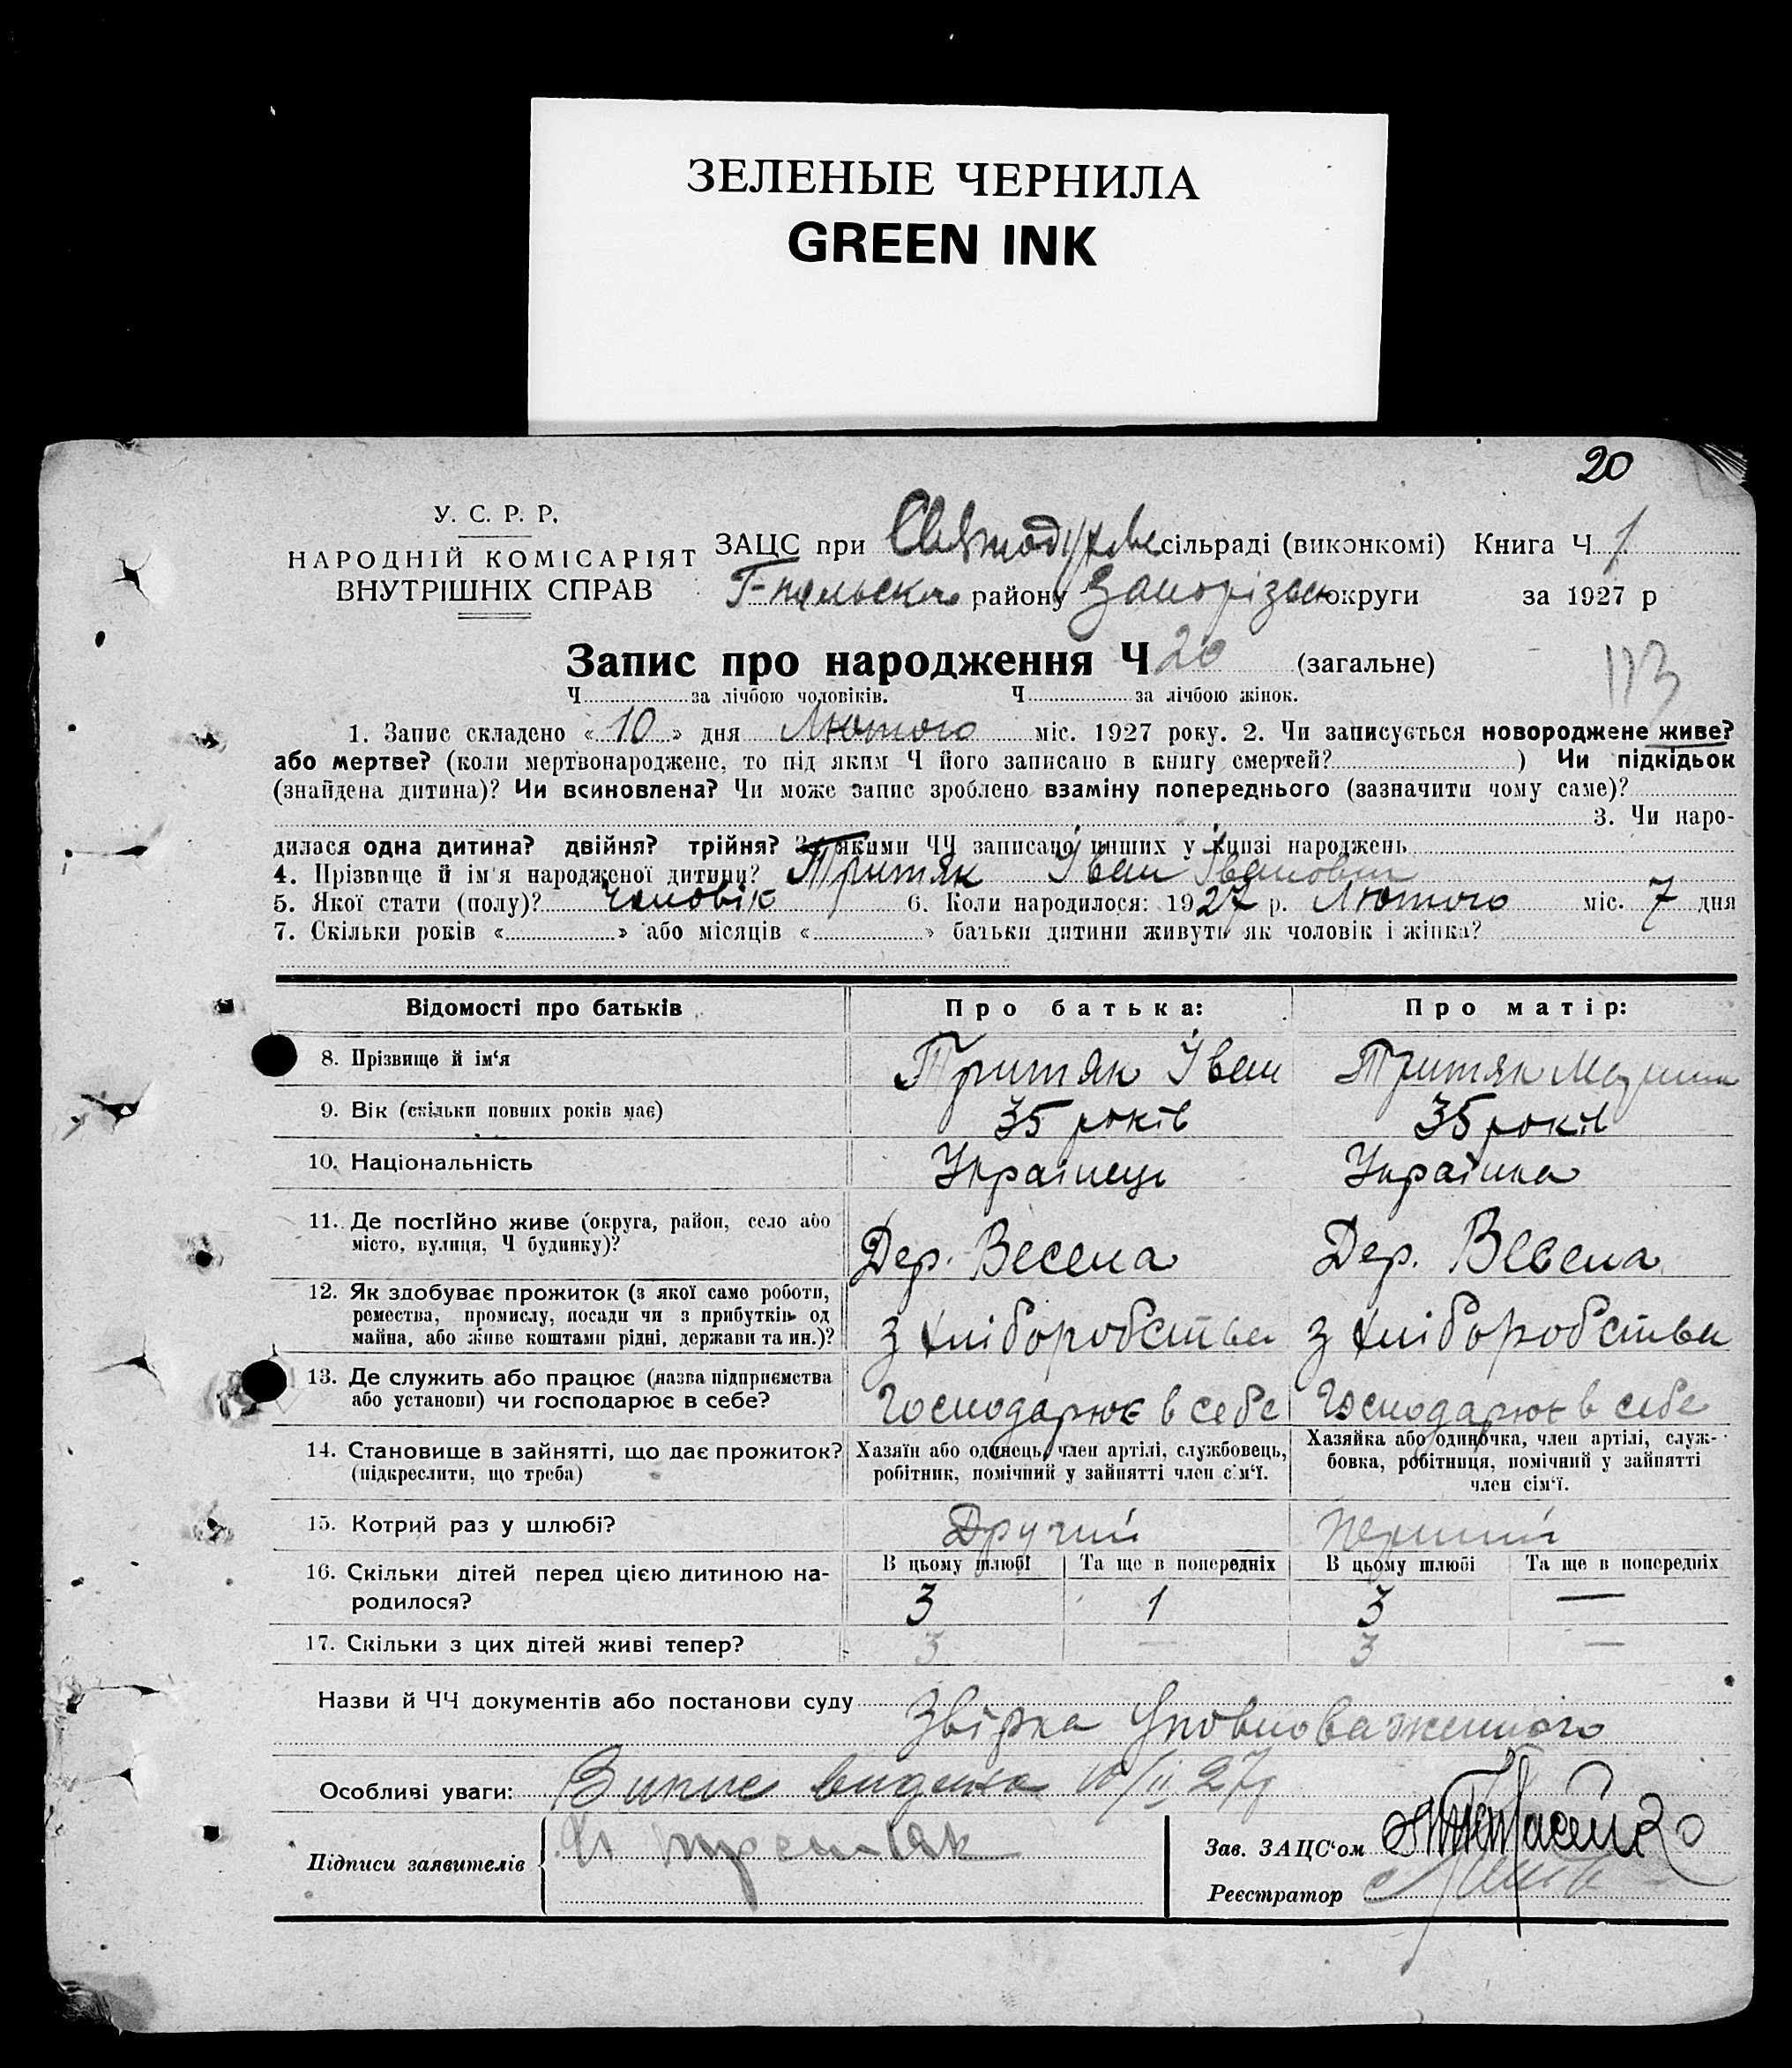 ЗЕЛЕНЫЕ ЧЕРНИЛА
GREEN INK
20
У. С. Р. Р.
НАРОДНІЙ КОМІСАРІЯТ
ВНУТРІШНІХ СПРАВ
ЗАЦС при сільраді (виконкомі) Книга Ч 1
району Запорізськ округи за 1927 р
Запис про народження Ч 20 (загальне)
113
Ч за лічбою чоловіків. Ч за лічбою жінок.
1. Запис складено « 10 » дня Лютого міс. 1927 року. 2. Чи записується новороджене живе?
або мертве? (коли мертвонароджене, то під яким Ч його записано в книгу смертей? ) Чи підкідьок
(знайдена дитина)? Чи всиновлена? Чи може запис зроблено взаміну попереднього (зазначити чому саме)?
3. Чи наро-
дилася одна дитина? двійня? трійня? якими ЧЧ записано инших у книзі народжень
4. Прізвище й ім'я народженої дитини? Тритяк Іван Іванович
5. Якої стати (полу)? Чоловік 6. Коли народилося: 1927 р. Лютого міс. 7 дня
7. Скільки років « » або місяців « » батьки дитини живуть як чоловік і жінка?
Відомості про батьків Про батька: Про матір:
8. Прізвище й ім'я Тритяк Іван Тритяк
9. Вік (скільки повних років має) 35 років 35 років
10. Національність Українець Українка
11. Де постійно живе (округа, район, село або
місто, вулиця, Ч будинку)? Дер. Весела Дер. Весела
12. Як здобуває прожиток (з якої само роботи,
ремества, промислу, посади чи з прибутків од
майна, або живе коштами рідні, держави та ин.)? з хліборобства з хліборобства
13. Де служить або працює (назва підприємства
або установи) чи господарює в себе? Господарює в себе Господарює в себе
14. Становище в зайнятті, що дає прожиток? Хазяїн або одинець, член артілі, службовець, Хазяйка або одиночка, член артілі, служ-
(підкреслити, що треба) робітник, помічний у зайнятті член сім'ї. бовка, робітниця, помічний у зайнятті
член сім'ї.
15. Котрий раз у шлюбі? Другий перший
16. Скільки дітей перед цією дитиною на- В цьому шлюбі Та ще в попередніх В цьому шлюбі Та ще в попередніх
родилося? 3 1 3 —
17. Скільки з цих дітей живі тепер? 3 — 3 —
Назви й ЧЧ документів або постанови суду
Звірка Уповноваженного
Особливі уваги: Випис видана 10/II 27р
Підписи заявителів третяк
Зав. ЗАЦС'ом
Реєстратор